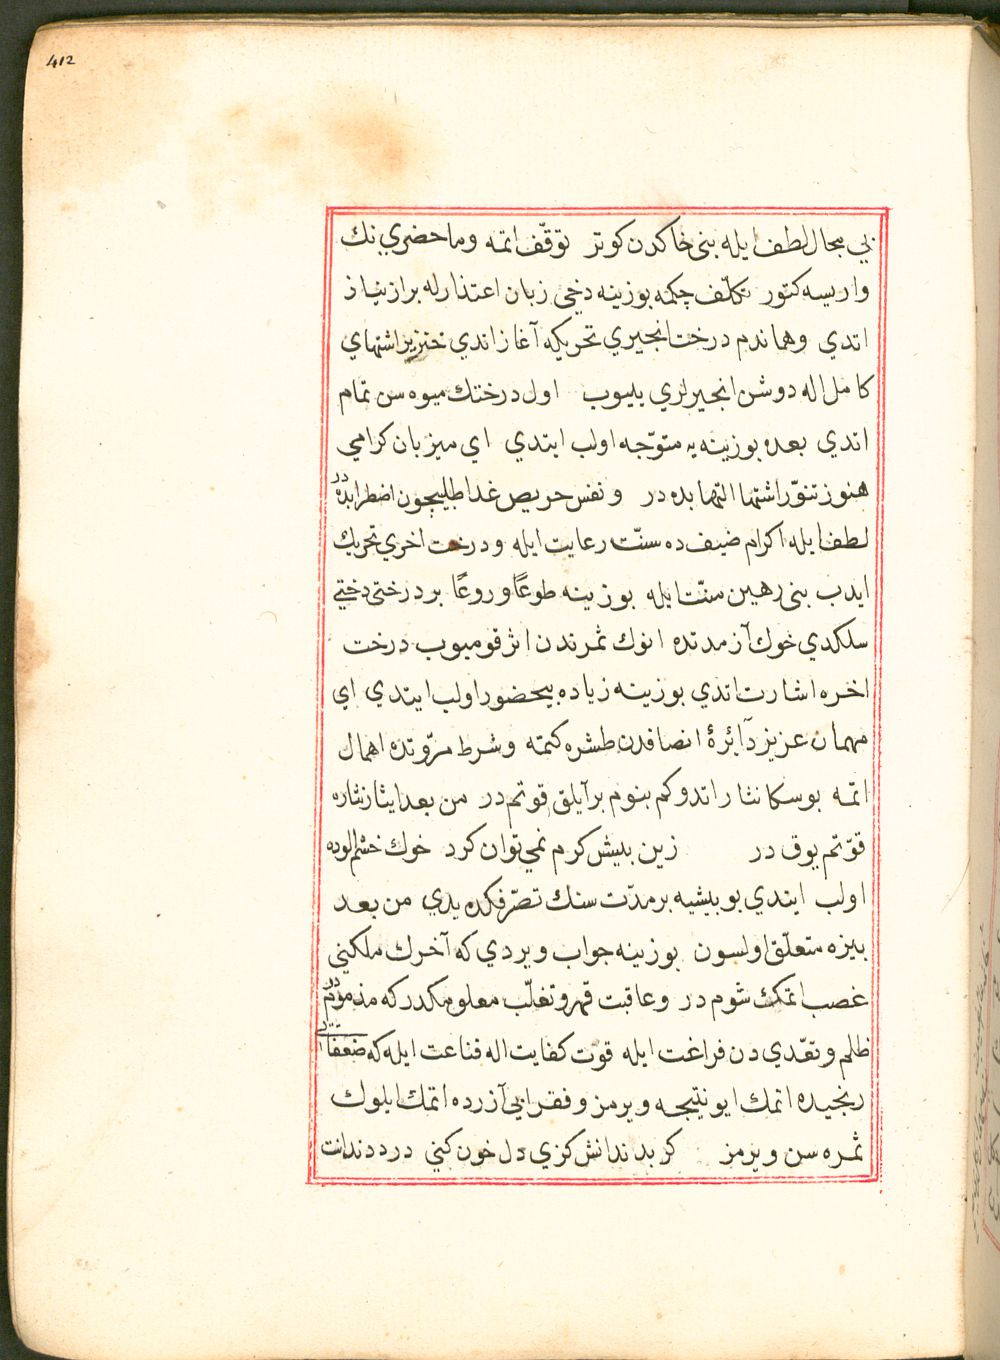 412
بي مجال لطف ايله بنى خاكدن كوتر توقّف اتمه وما حضري نك
واريسه كتور تكلّف چكمه بوزينه دخي زبان اعتذارله براز نياز
اتدي وهماندم درخت انجيري تحريكه آغاز اندي خنزير اشتهاي
كامل اله دوشن انجيرلري ييوب اول درختك ميوه سن تمام
اتدي بعده بوزينه يه متوّجه اولب ايتدي اي ميزبان كرامي
هنوز تنوّر اشتها التهابده در ونفس حريص غدا طلبيچون اضطرابده در
لطف ايله اكرام ضيف ده سنّت رعايت ايله ودرخت اخري تحريك
ايدب بنى رهين منّت ايله بوزينه طوعًا وروعًا بر درختى دخي
سلكدي خوك آز مدتده انوك ثمرندن اثر قوميوب درخت
اخره اشارت اتدي بوزينه زياده بيحضور اولب ايتدي اي
مهمان عزيز دآئرۀ انصافدن طشره كتمه وشرط مرّوتده اهمال
اتمه بوسكا نثار اتدوكم بنوم بر آيلق قوتم در من بعد ايثار نثاره
قوّتم يوق در زين بيش كرم نمي توان كرد خوك خشم الوده
اولب ايتدي بو بيشيه بر مدّت سنك تصرّفكده يدي من بعد
بيزه متعلّق اولسون بوزينه جواب ويردي كه آخرك ملكيني
غصب اتمك شوم در وعاقبت قهر وتغلّب معلومكدر كه مذموم در
ظلم وتعّدي دن فراغت ايله قوت كفايت اله قناعت ايله كه ضعفا يي
رنجيده اتمك ايو نتيجه ويرمز وفقرايي آزرده اتمك ايلوك
ثمره سن ويرمز كر بدندانش كزي دل خون كني درد دندانت